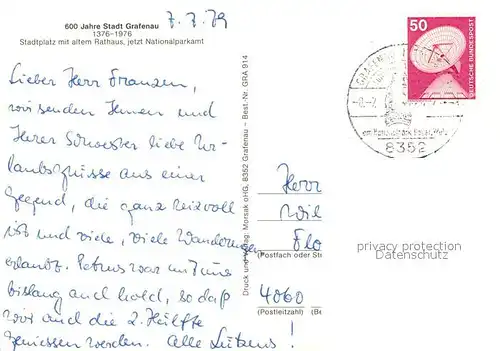 600 Jahre Stadt Grafenau
1376–1976
Stadtplatz mit altem Rathaus, jetzt Nationalparkamt
7.7.79
Lieber Herr Franzen,
wir senden Ihnen und
Ihrer Schwester liebe Ur-
laubsgrüsse aus einer
Gegend, die ganz reizvoll
ist und viele, viele Wanderungen
erlaubt. Petrus war uns
bislang auch hold, so daß
wir auch die 2. Hälfte
geniessen werden. Alle Lützens!
Druck und Verlag: Morsak oHG, 8352 Grafenau – Best.-Nr. GRA 914
50
DEUTSCHE BUNDESPOST
8352
Herr
Wil
Flo
(Postfach oder St
4060
(Postleitzahl) (Be
privacy protection
Datenschutz